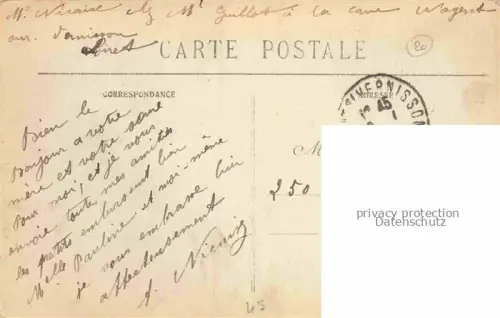 Mr. Nicaise chez Mr Guillot à la cave Nogent
sur Vernisson
Loiret
CARTE POSTALE
20
CORRESPONDANCE
ADRESSE
VERNISSON
45
Bien le
Bonjour a votre
mère et votre sœur
Pour moi, et je vous
envoie toute mes amitiés
les petits embrassent bien
Melle Pauline et moi-même
je vous embrasse bien
affectueusement
Nicaise
M
250
privacy protection
Datenschutz
45